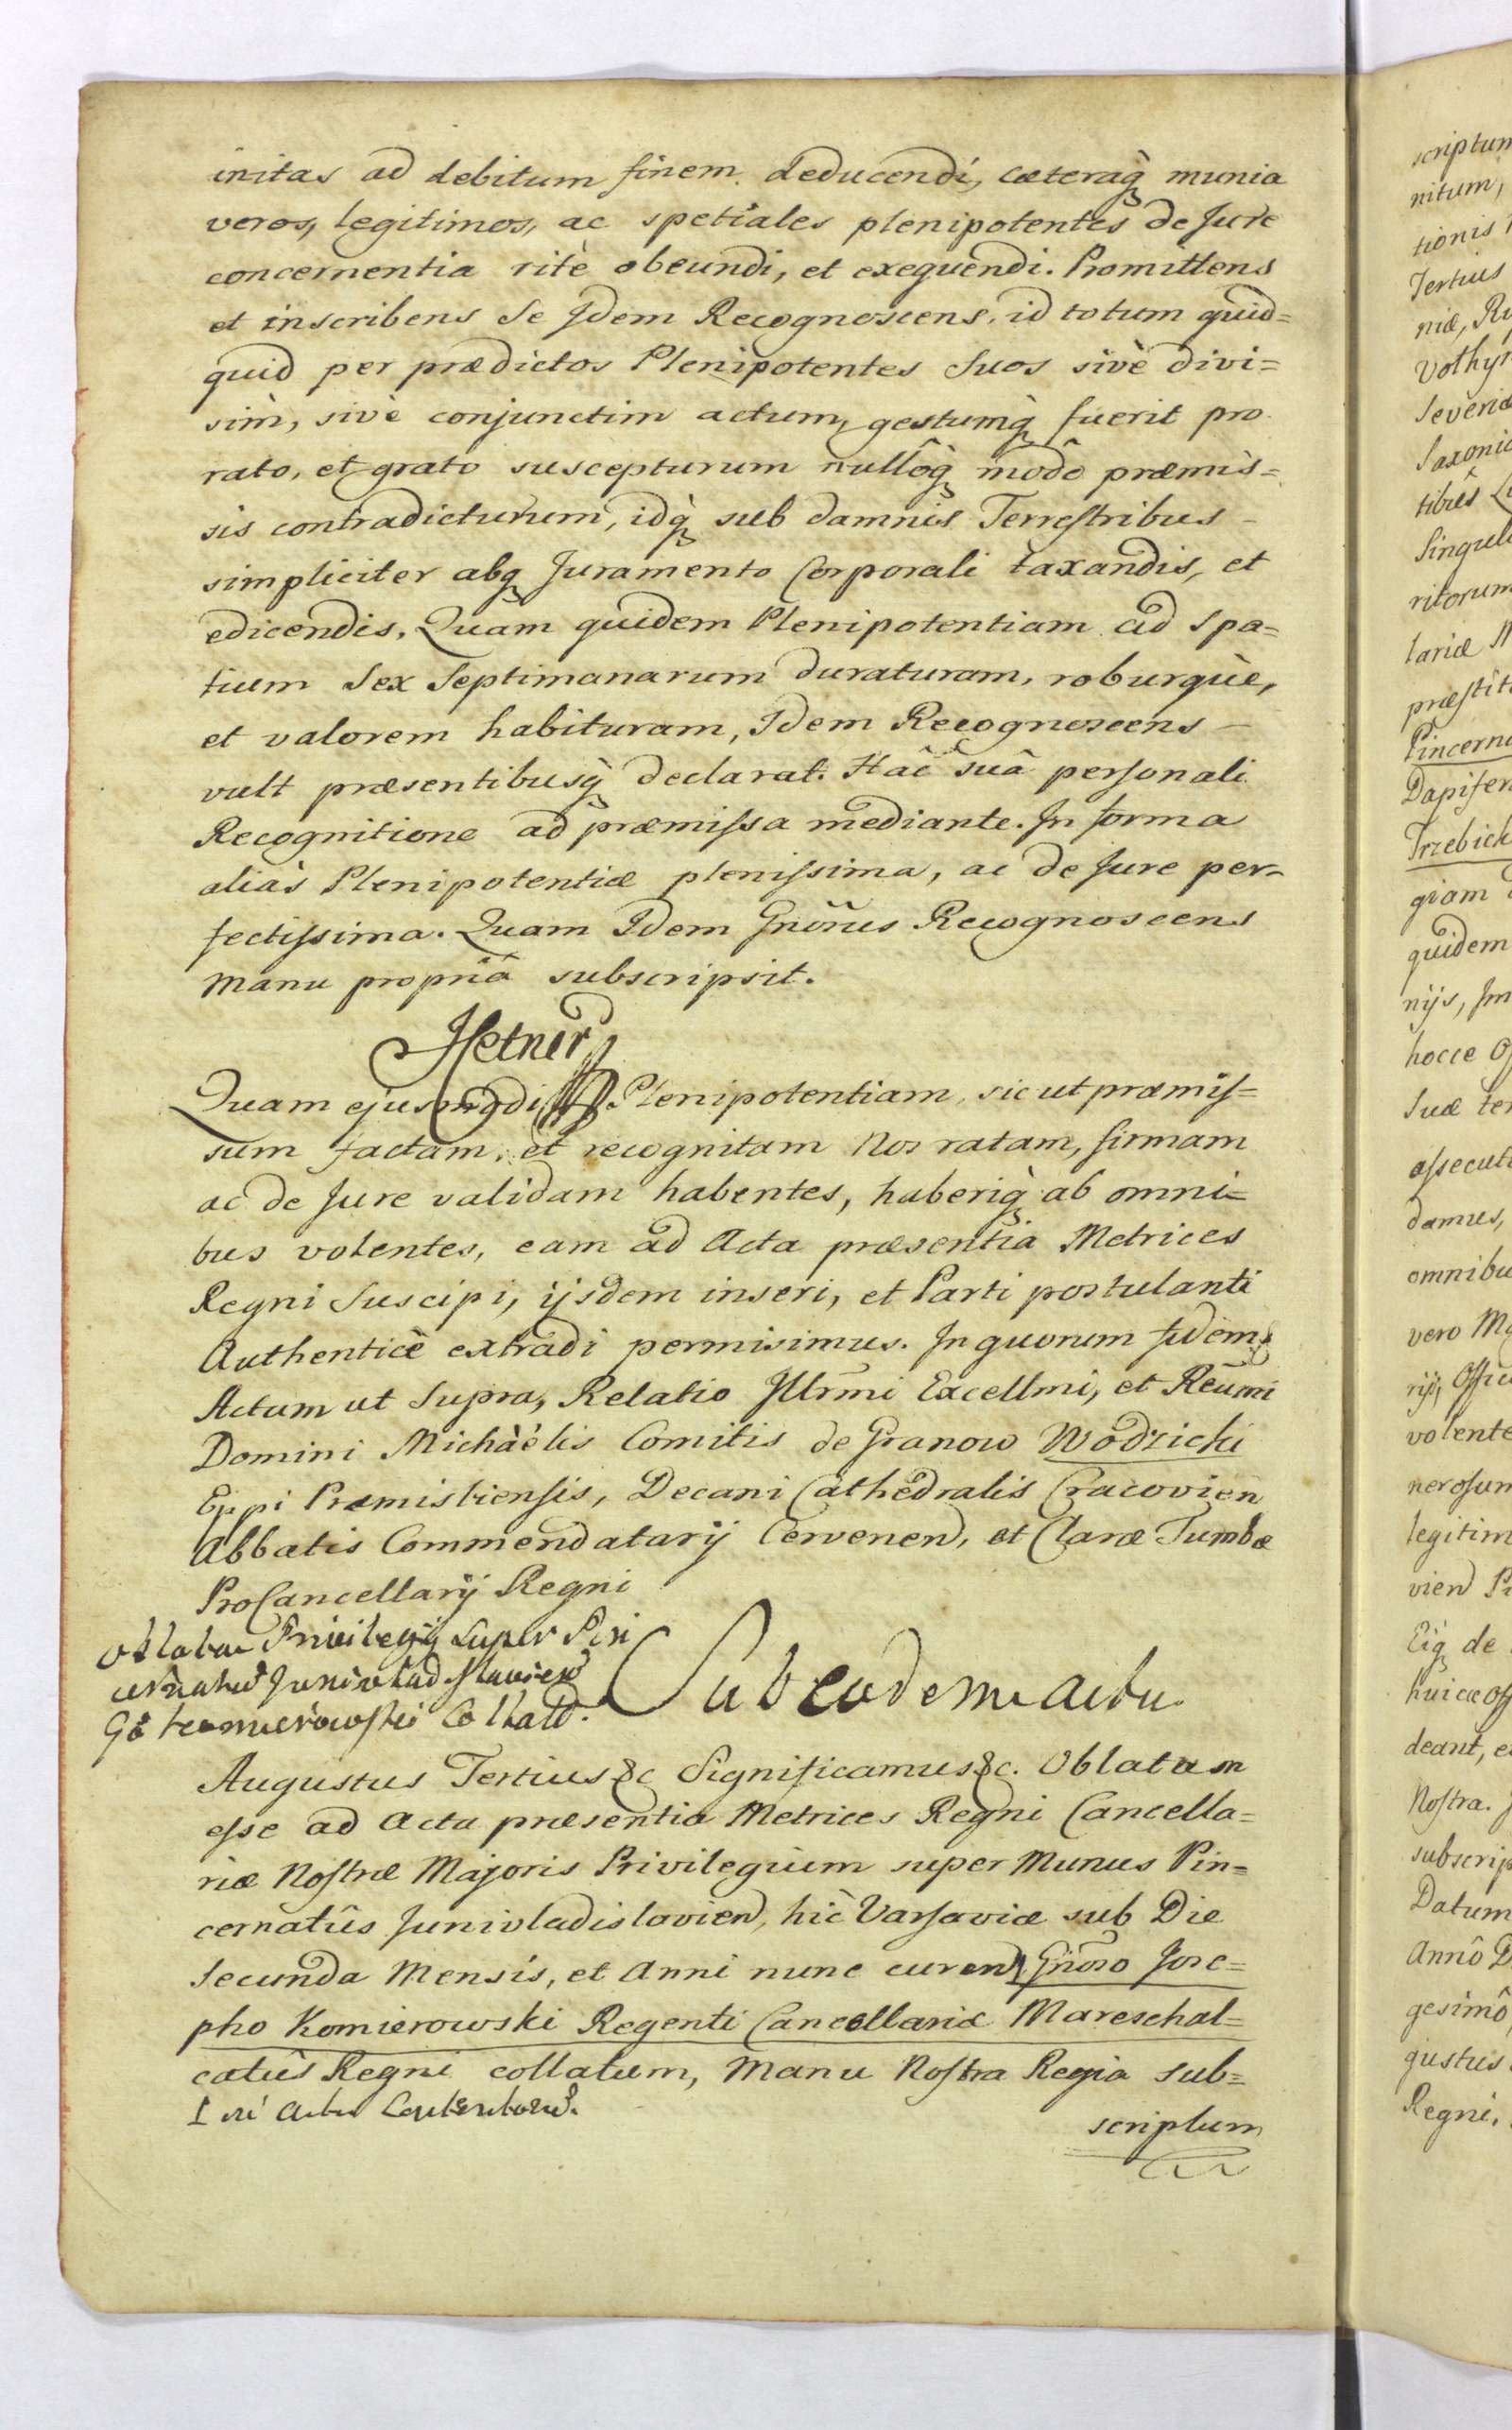 initas ad debitum finem deducendi, cæteraq̃ munia
veros, legitimos, ac spetiales plenipotentes de Jure
concernentia ritè obeundi, et exequendi. Promittens
et inscribens Se Idem Recognoscens, id totum quid=
quid per prædictos Plenipotentes Suos sivè divi=
sim, sivè conjunctim actum, gestumq̃ fuerit pro
rato, et grato suscepturum nullôq̃ modô præmis=
sis contradicturum, idq̃ sub damnis Terrestribus
simpliciter absq̃ Juramento Corporali taxandis, et
edicendis. Quam quidem Plenipotentiam ad Spa=
tium Sex Septimanarum duraturam, roburquè,
et valorem habituram, Idem Recognoscens
vult præsentibusq̃ declarat. Hac suâ personali
Recognitione ad præmissa mediante. In forma
aliàs Plenipotentiæ plenissima, ac de Jure per=
fectissima. Quam Idem Gnõrus Recognoscens
manu propriâ subscripsit.
Hetner
Quam ejusmodi Plenipotentiam, sic ut præmis=
sum factam, et recognitam Nos ratam, firmam
ac de Jure validam habentes, haberiq̃ ab omni=
bus volentes, eam ad Acta præsentia Metrices
Regni Suscipi, ijsdem inseri, et Parti postulanti
Authenticè extradi permisimus. In quorum fidem
Actum ut Supra, Relatio Illrmi Excellmi, et Reũmi
Domini Michaèlis Comitis de Granow Wodzicki
Eppi Præmisliensis, Decani Cathedralis Cracovien
Abbatis Commendatarij Cervenen, et Claræ Tumbæ
ProCancellarij Regni
Oblata Privilegij Super Pin
cernatus Junivladislavien
Gõ Komierowski Collati.
Sub eodem Actu
Augustus Tertius &c Significamus &c. Oblatam
esse ad Acta præsentia Metrices Regni Cancella=
riæ Nostræ Majoris Privilegium super Munus Pin=
cernatûs Junivladislavien, hìc Varsaviæ sub Die
Secunda Mensis, et Anni nunc curen Gnõro Jose=
pho Komierowski Regenti Cancellariæ Mareschal=
catûs Regni collatum, Manu Nostra Regia sub=
scriptum